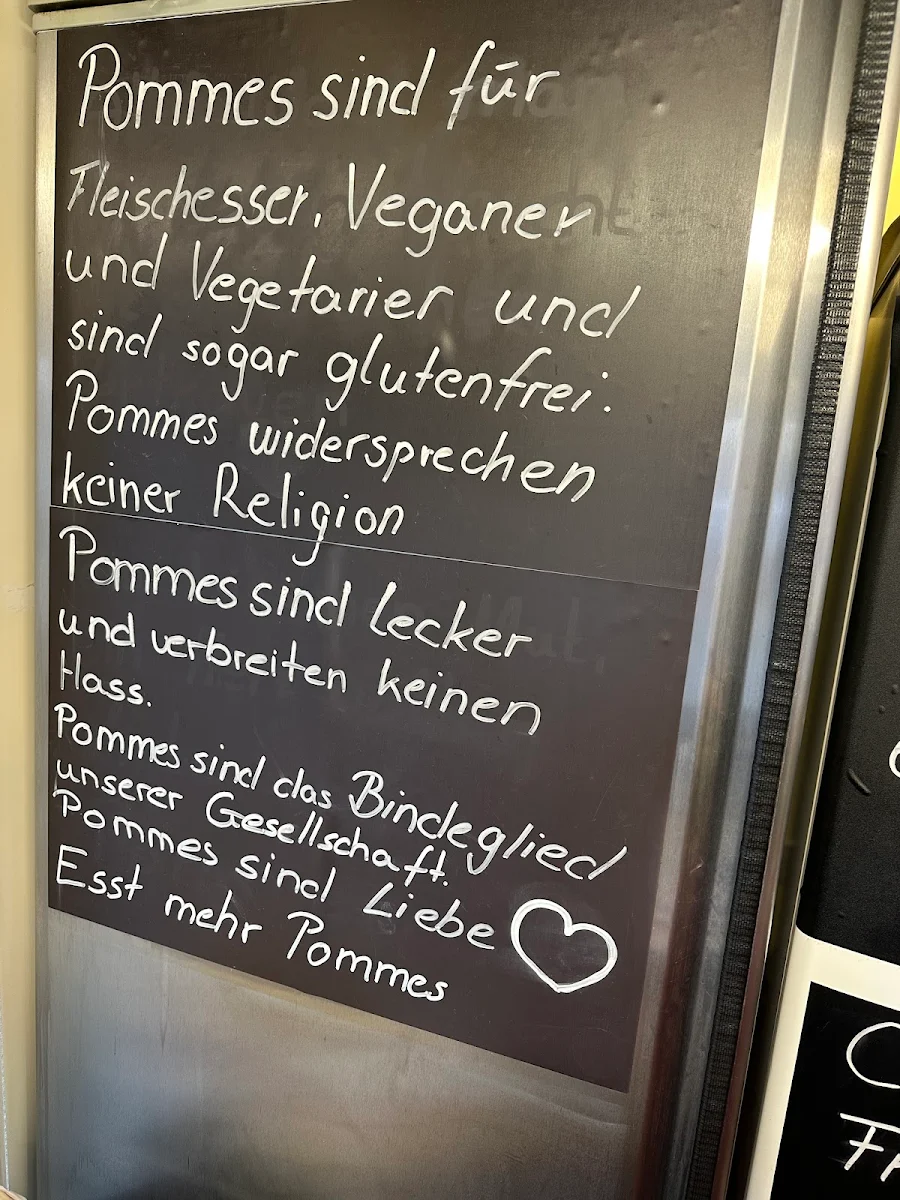 Pommes sind für
Fleischesser, Veganer
und Vegetarier und
sind sogar glutenfrei.
Pommes widersprechen
keiner Religion
Pommes sind lecker
und verbreiten keinen
Hass.
Pommes sind das Bindeglied
unserer Gesellschaft.
Pommes sind Liebe
Esst mehr Pommes